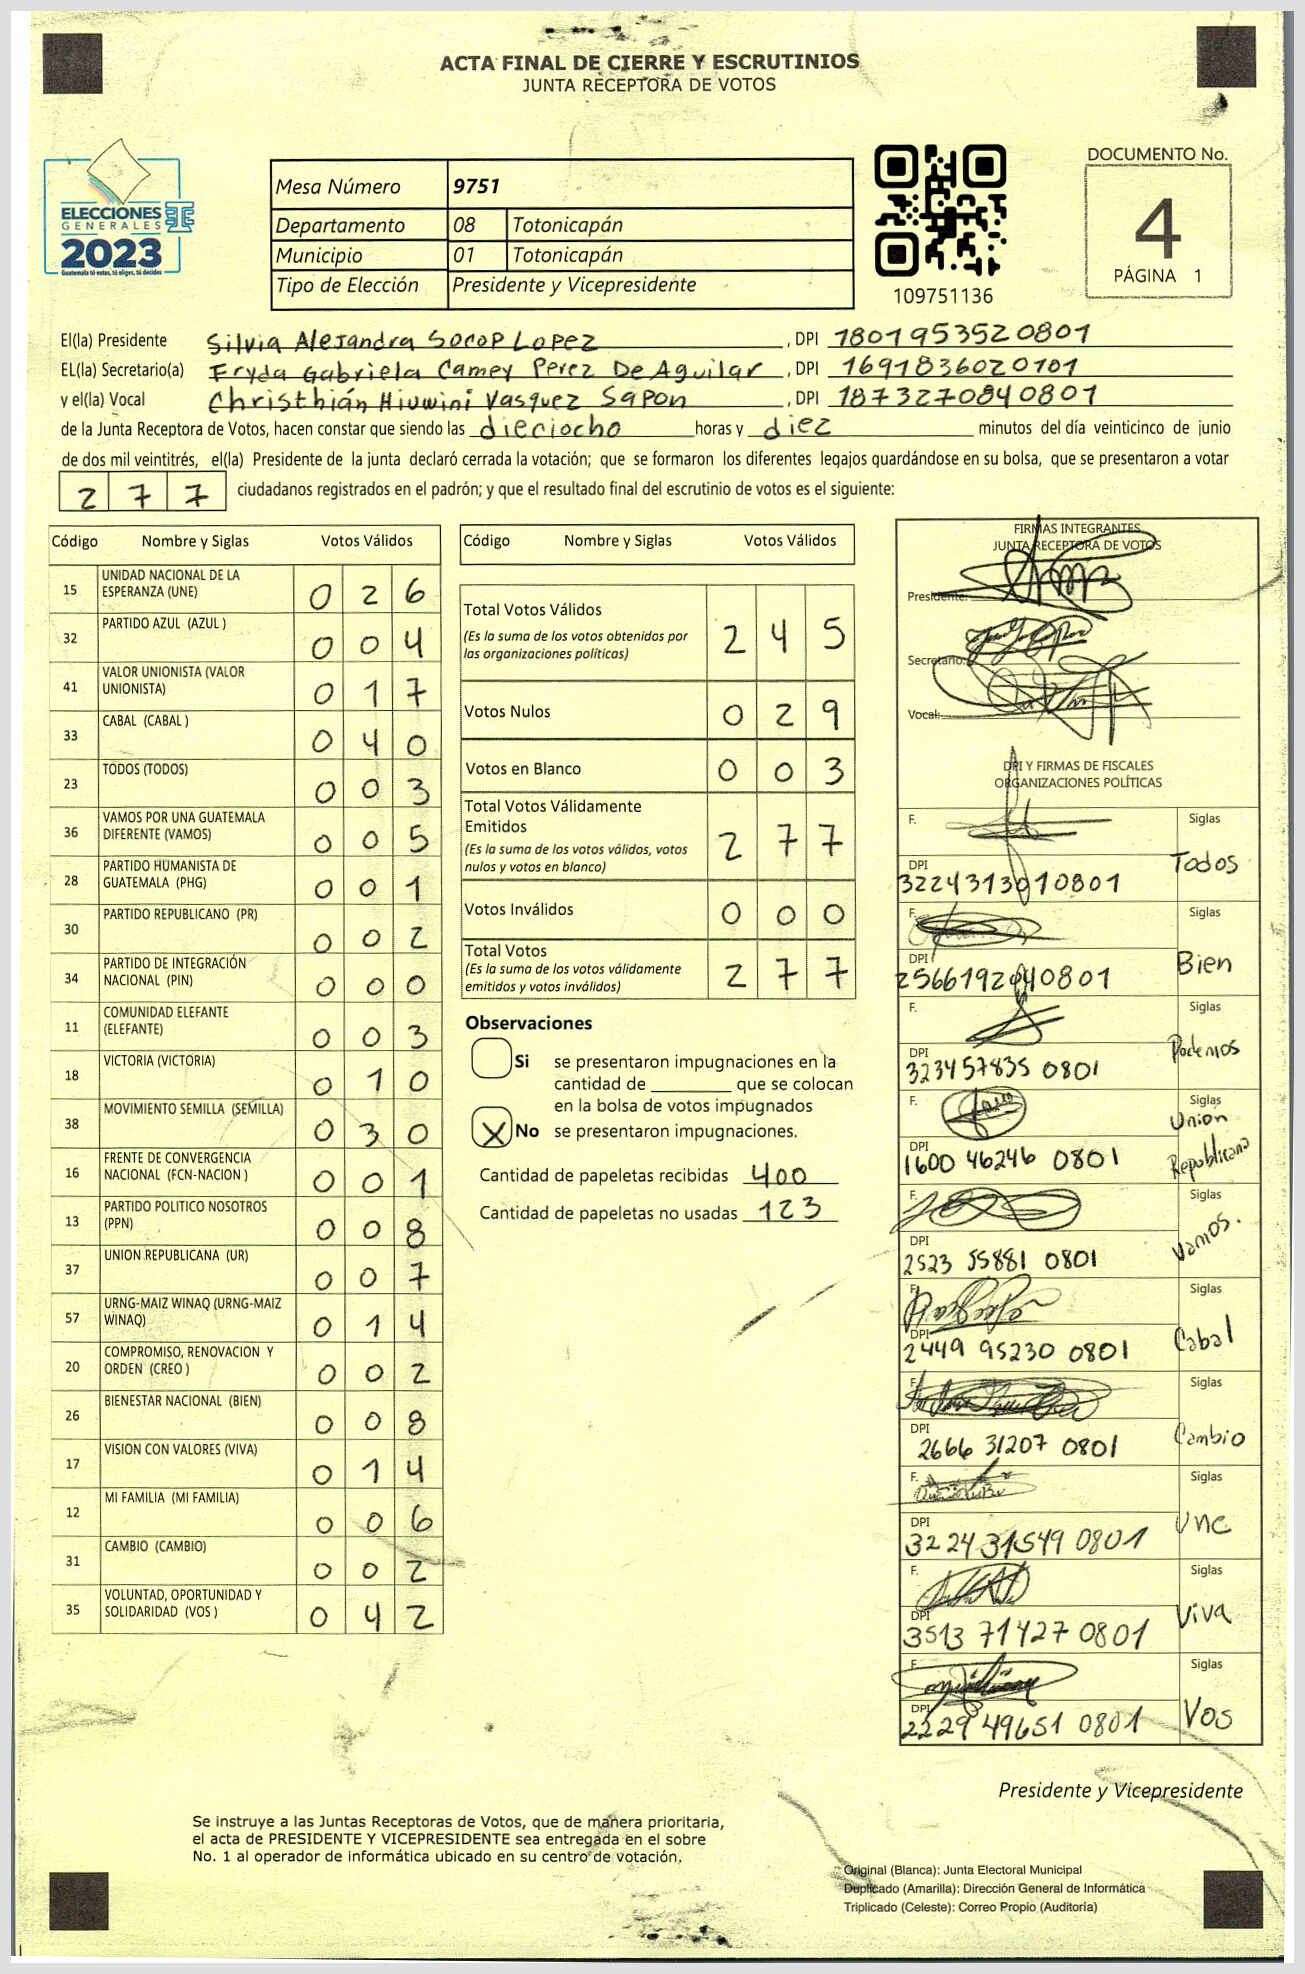 ACTA FINAL DE CIERRE Y ESCRUTINIOS
JUNTA RECEPTORA DE VOTOS
ELECCIONES
GENERALES
2023
Guatemala tú votas, tú eliges, tú decides
Mesa Número 9751
Departamento 08 Totonicapán
Municipio 01 Totonicapán
Tipo de Elección Presidente y Vicepresidente
109751136
DOCUMENTO No.
4
PÁGINA 1
El(la) Presidente Silvia Alejandra Socop Lopez, DPI 1801953520801
EL(la) Secretario(a) Fryda Gabriela Camey Perez De Aguilar, DPI 1691836020101
y el(la) Vocal Christhián Hiuwini Vasquez Sapon, DPI 1873270840801
de la Junta Receptora de Votos, hacen constar que siendo las dieciocho horas y diez minutos del día veinticinco de junio
de dos mil veintitrés, el(la) Presidente de la junta declaró cerrada la votación; que se formaron los diferentes legajos guardándose en su bolsa, que se presentaron a votar
2 7 7 ciudadanos registrados en el padrón; y que el resultado final del escrutinio de votos es el siguiente:
Código Nombre y Siglas Votos Válidos
15 UNIDAD NACIONAL DE LA ESPERANZA (UNE) 0 2 6
32 PARTIDO AZUL (AZUL ) 0 0 4
41 VALOR UNIONISTA (VALOR UNIONISTA) 0 1 7
33 CABAL (CABAL ) 0 4 0
23 TODOS (TODOS) 0 0 3
36 VAMOS POR UNA GUATEMALA DIFERENTE (VAMOS) 0 0 5
28 PARTIDO HUMANISTA DE GUATEMALA (PHG) 0 0 1
30 PARTIDO REPUBLICANO (PR) 0 0 2
34 PARTIDO DE INTEGRACIÓN NACIONAL (PIN) 0 0 0
11 COMUNIDAD ELEFANTE (ELEFANTE) 0 0 3
18 VICTORIA (VICTORIA) 0 1 0
38 MOVIMIENTO SEMILLA (SEMILLA) 0 3 0
16 FRENTE DE CONVERGENCIA NACIONAL (FCN-NACION ) 0 0 1
13 PARTIDO POLITICO NOSOTROS (PPN) 0 0 8
37 UNION REPUBLICANA (UR) 0 0 7
57 URNG-MAIZ WINAQ (URNG-MAIZ WINAQ) 0 1 4
20 COMPROMISO, RENOVACION Y ORDEN (CREO ) 0 0 2
26 BIENESTAR NACIONAL (BIEN) 0 0 8
17 VISION CON VALORES (VIVA) 0 1 4
12 MI FAMILIA (MI FAMILIA) 0 0 6
31 CAMBIO (CAMBIO) 0 0 2
35 VOLUNTAD, OPORTUNIDAD Y SOLIDARIDAD (VOS ) 0 4 2
Código Nombre y Siglas Votos Válidos
Total Votos Válidos 2 4 5
(Es la suma de los votos obtenidos por
las organizaciones políticas)
Votos Nulos 0 2 9
Votos en Blanco 0 0 3
Total Votos Válidamente
Emitidos 2 7 7
(Es la suma de los votos válidos, votos
nulos y votos en blanco)
Votos Inválidos 0 0 0
Total Votos 2 7 7
(Es la suma de los votos válidamente
emitidos y votos inválidos)
Observaciones
Si se presentaron impugnaciones en la
cantidad de ________ que se colocan
en la bolsa de votos impugnados
X No se presentaron impugnaciones.
Cantidad de papeletas recibidas 400
Cantidad de papeletas no usadas 123
FIRMAS INTEGRANTES
JUNTA RECEPTORA DE VOTOS
Presidente:
Secretario:
Vocal:
DPI Y FIRMAS DE FISCALES
ORGANIZACIONES POLÍTICAS
F. Siglas
DPI 3224313010801 Todos
F. Siglas
DPI 2566192040801 Bien
F. Siglas
DPI 323457835 0801 Podemos
F. Siglas
DPI 1600 46246 0801 Union Republicana
F. Siglas
DPI 2523 55881 0801 Vamos.
F. Siglas
DPI 2449 95230 0801 Cabal
F. Siglas
DPI 2666 31207 0801 Cambio
F. Siglas
DPI 3224 31549 0801 Une
F. Siglas
DPI 3513 71427 0801 Viva
F. Siglas
DPI 2229 49651 0801 Vos
Presidente y Vicepresidente
Se instruye a las Juntas Receptoras de Votos, que de manera prioritaria,
el acta de PRESIDENTE Y VICEPRESIDENTE sea entregada en el sobre
No. 1 al operador de informática ubicado en su centro de votación.
Original (Blanca): Junta Electoral Municipal
Duplicado (Amarilla): Dirección General de Informática
Triplicado (Celeste): Correo Propio (Auditoría)